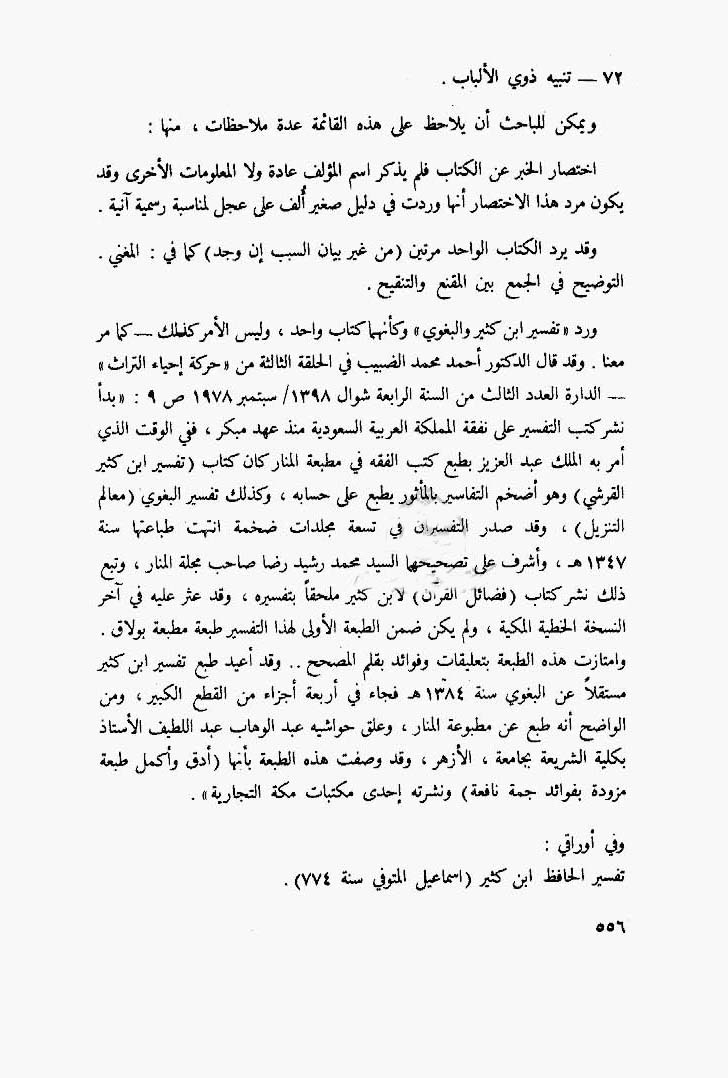 ٧٢ — تنبيه ذوي الألباب .
ويمكن للباحث أن يلاحظ على هذه القائمة عدة ملاحظات ، منها :
اختصار الخبر عن الكتاب فلم يذكر اسم المؤلف عادة ولا المعلومات الأخرى وقد
يكون مرد هذا الاختصار أنها وردت في دليل صغير أُلف على عجل لمناسبة رسمية آنية .
وقد يرد الكتاب الواحد مرتين (من غير بيان السبب إن وجد) كما في : المغني .
التوضيح في الجمع بين المقنع والتنقيح .
ورد «تفسير ابن كثير والبغوي» وكأنهما كتاب واحد ، وليس الأمر كذلك — كما مر
معنا . وقد قال الدكتور أحمد محمد الضبيب في الحلقة الثالثة من «حركة إحياء التراث»
— الدارة العدد الثالث من السنة الرابعة شوال ١٣٩٨/ سبتمبر ١٩٧٨ ص ٩ : «بدأ
نشر كتب التفسير على نفقة المملكة العربية السعودية منذ عهد مبكر ، ففي الوقت الذي
أمر به الملك عبد العزيز بطبع كتب الفقه في مطبعة المنار كان كتاب (تفسير ابن كثير
القرشي) وهو أضخم التفاسير بالمأثور يطبع على حسابه ، وكذلك تفسير البغوي (معالم
التنزيل) ، وقد صدر التفسيران في تسعة مجلدات ضخمة انتهت طباعتها سنة
١٣٤٧ هـ ، وأشرف على تصحيحها السيد محمد رشيد رضا صاحب مجلة المنار ، وتبع
ذلك نشر كتاب (فضائل القرآن) لابن كثير ملحقاً بتفسيره ، وقد عثر عليه في آخر
النسخة الخطية المكية ، ولم يكن ضمن الطبعة الأولى لهذا التفسير طبعة مطبعة بولاق .
وامتازت هذه الطبعة بتعليقات وفوائد بقلم المصحح .. وقد أعيد طبع تفسير ابن كثير
مستقلاً عن البغوي سنة ١٣٨٤ هـ فجاء في أربعة أجزاء من القطع الكبير ، ومن
الواضح أنه طبع عن مطبوعة المنار ، وعلق حواشيه عبد الوهاب عبد اللطيف الأستاذ
بكلية الشريعة بجامعة ، الأزهر ، وقد وصفت هذه الطبعة بأنها (أدق وأكمل طبعة
مزودة بفوائد جمة نافعة) ونشرته إحدى مكتبات مكة التجارية» .
وفي أوراقي :
تفسير الحافظ ابن كثير (اسماعيل المتوفي سنة ٧٧٤) .
٥٥٦